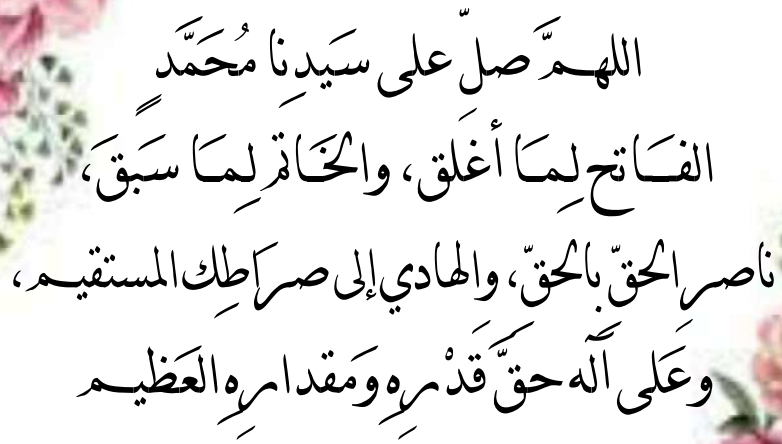 اللهمَّ صلّ على سَيَدِنِا مُحَمَّدٍ
الفَاتح لِمَا أغلَق، والخَاتم لِمَا سَبَقَ،
ناصر الحقّ بِالحقّ، والهادي إلى صرَاطِك المستقيم،
وعَلى آله حقَّ قَدْرِهِ وَمَقدارِهِ العَظيم